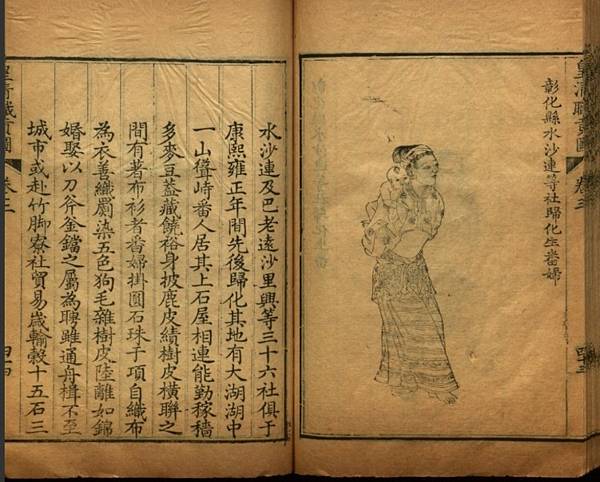 皇清職貢圖 卷三
彰化縣水沙連等社歸化生番婦
四十三
水沙連及巴老遠沙里興等三十六社俱于
康熙雍正年間先後歸化其地有大湖湖中
一山聳峙番人居其上石屋相連能勤稼穡
多麥豆蓋藏饒裕身披鹿皮績樹皮橫聯之
間有著布衫者番婦掛圓石珠于項自織布
為衣善織罽染五色狗毛雜樹皮陸離如錦
婚娶以刀斧釜鐺之屬為聘雖通舟楫不至
城市或赴竹腳寮社貿易歲輸穀十五石三
皇清職貢圖 卷三
四十四